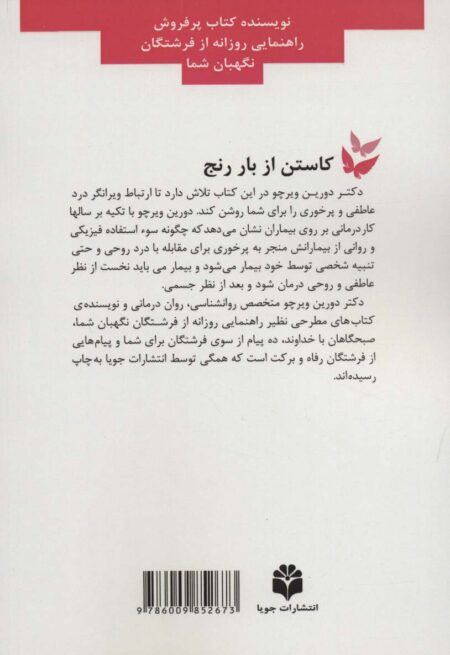 نویسنده کتاب پرفروش
راهنمایی روزانه از فرشتگان
نگهبان شما
کاستن از بار رنج
دکتر دورین ویرچو در این کتاب تلاش دارد تا ارتباط ویرانگر درد
عاطفی و پرخوری را برای شما روشن کند. دورین ویرچو با تکیه بر سالها
کاردرمانی بر روی بیماران نشان می‌دهدکه چگونه سوء استفاده فیزیکی
و روانی از بیمارانش منجر به پرخوری برای مقابله با درد روحی و حتی
تنبیه شخصی توسط خود بیمار می‌شود و بیمار می باید نخست از نظر
عاطفی و روحی درمان شود و بعد از نظر جسمی.
دکتر دورین ویرچو متخصص روانشناسی، روان درمانی و نویسنده‌ی
کتاب‌های مطرحی نظیر راهنمایی روزانه از فرشتگان نگهبان شما،
صبحگاهان با خداوند، ده پیام از سوی فرشتگان برای شما و پیام‌هایی
از فرشتگان رفاه و برکت است که همگی توسط انتشارات جویا به‌چاپ
رسیده‌اند.
انتشارات جویا
9 786009 852673